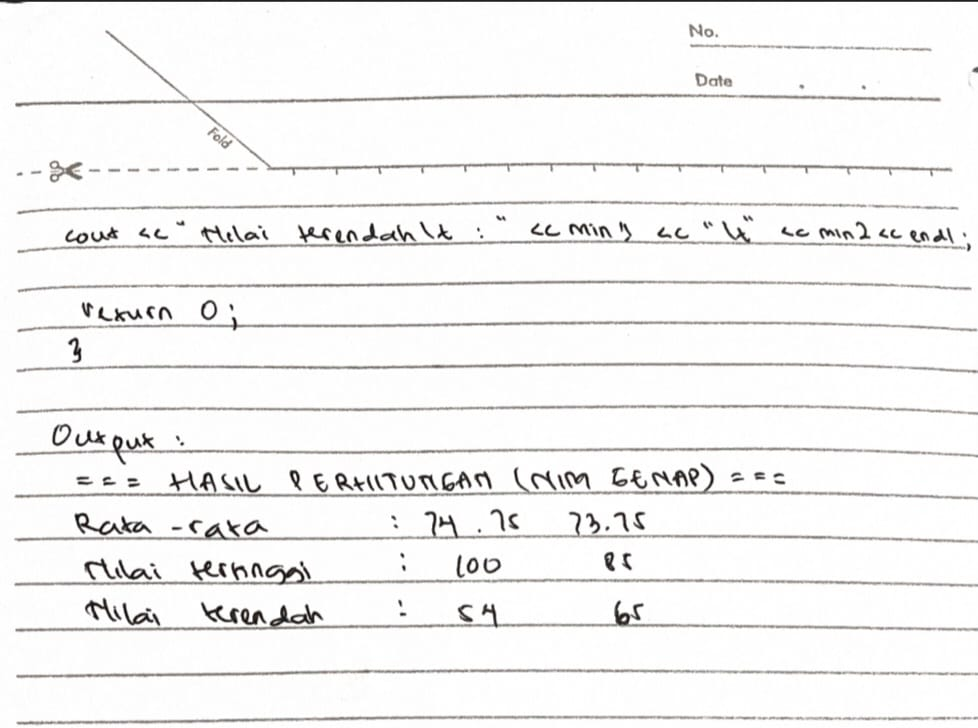 No.
Date
Fold
cout << "Nilai terendah\t : " << min1 << "\t" << min2 << endl;
return 0;
}
Output :
=== HASIL PERHITUNGAN (NIM GENAP) ===
Rata-rata : 74.75 73.75
Nilai tertinggi : 100 85
Nilai terendah : 54 65